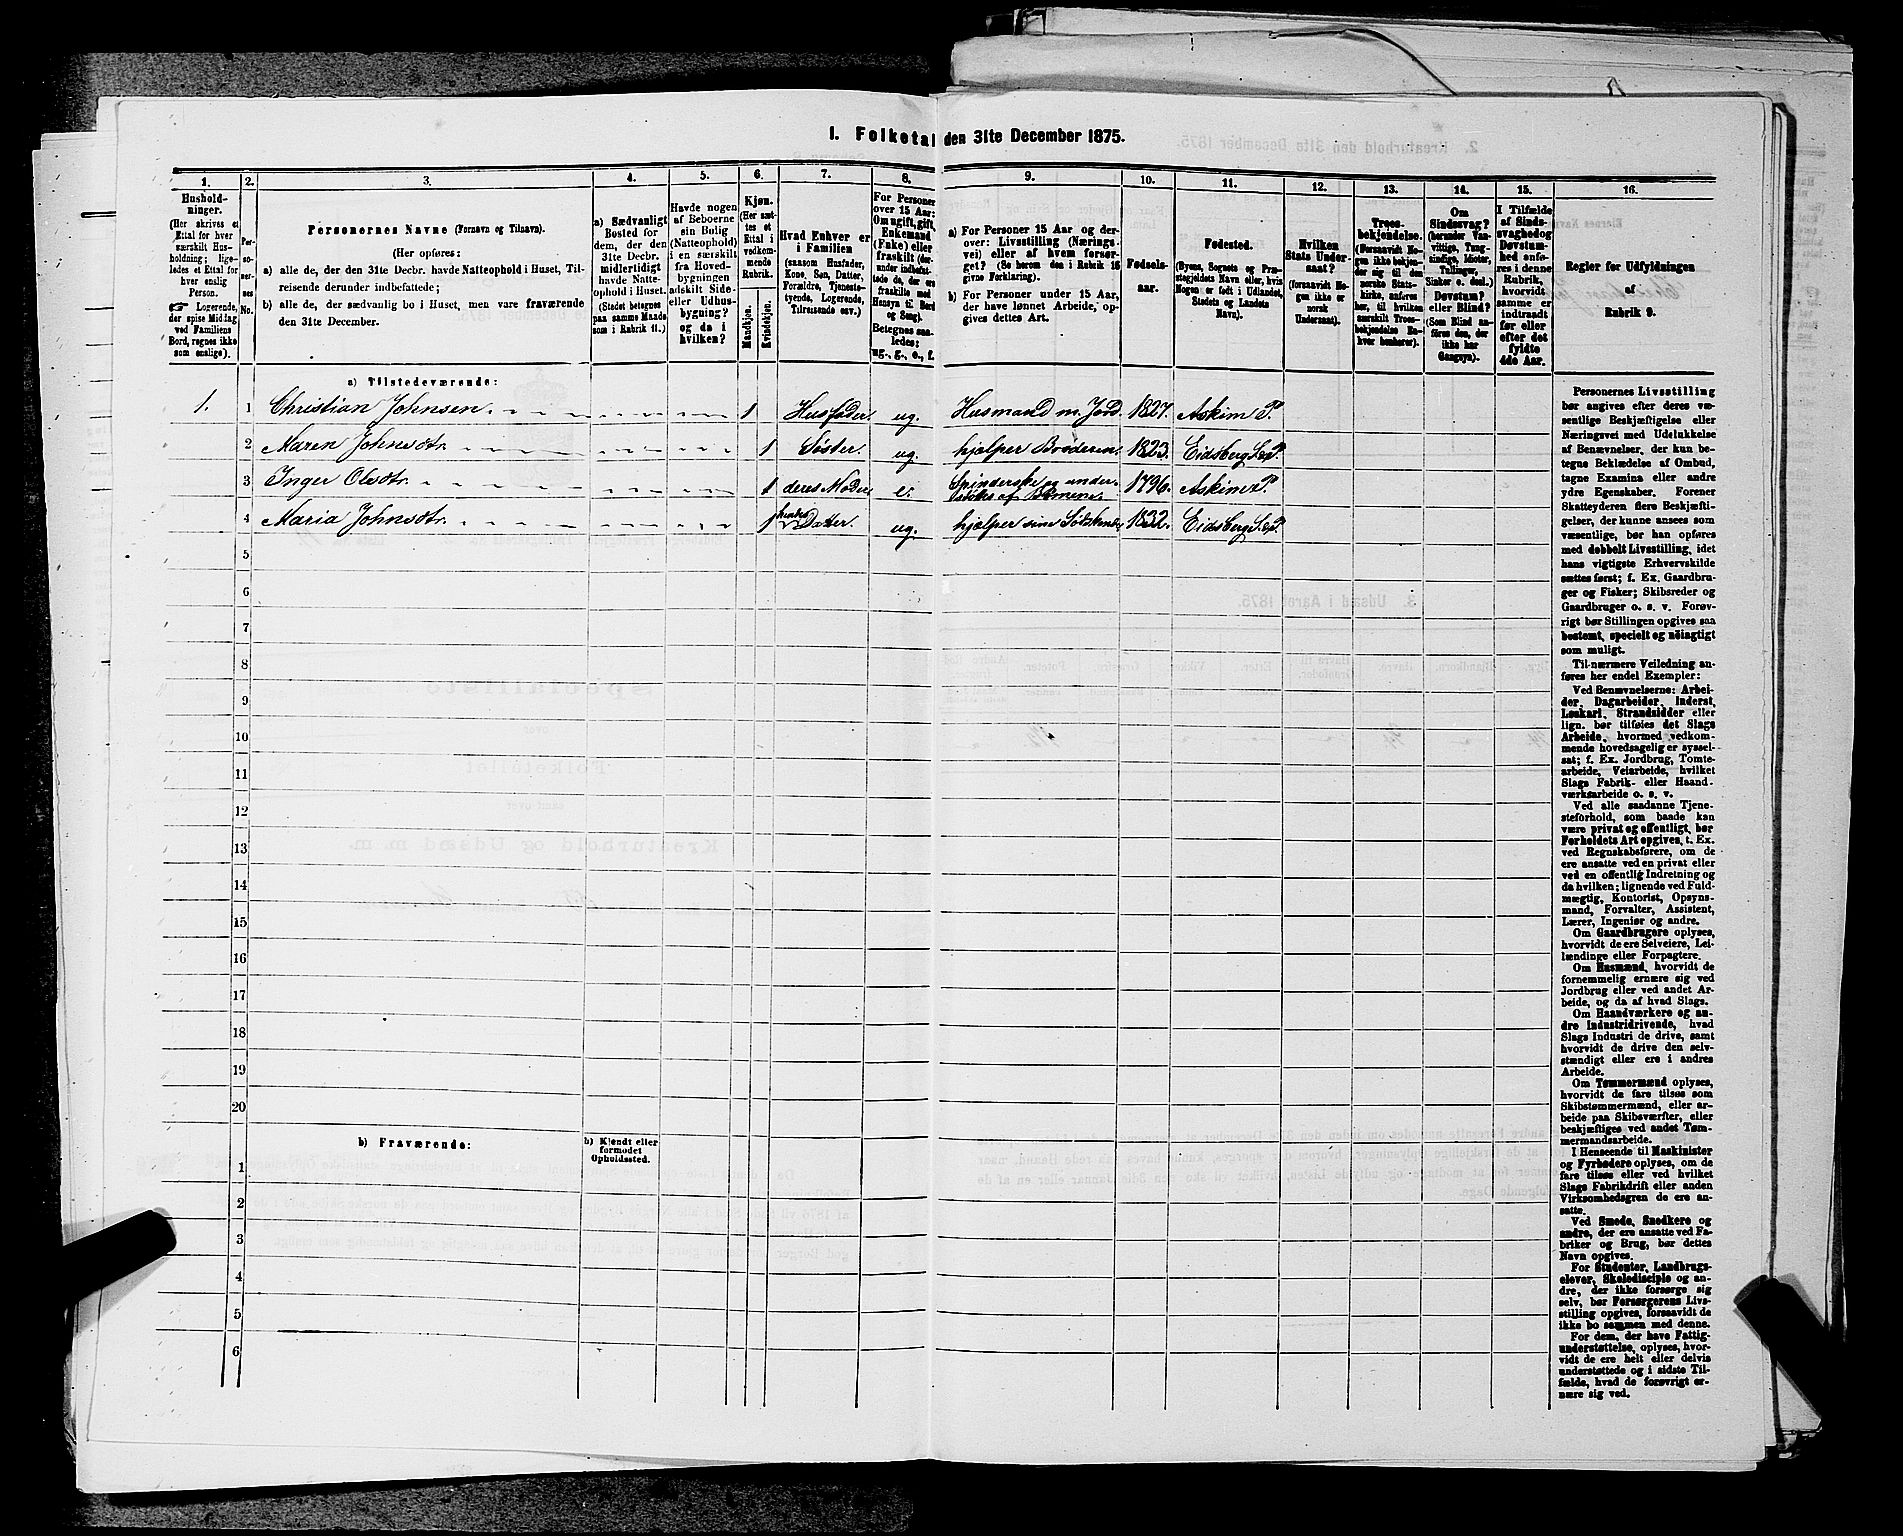 1. Folketal den 31te December 1875.
1. 2. 3. 4. 5. 6. 7. 8. 9. 10. 11. 12. 13. 14. 15. 16.
Hushold-
ninger.
(Her skrives et
Ettal for hver
særskilt Hus-
holdning; lige-
ledes et Ettal for
hver enslig
Person.
☞ Logerende,
der spise Middag
ved Familiens
Bord, regnes ikke
som enslige).
Per-
so-
ner-
nes
No.
Personernes Navne (Fornavn og Tilnavn).
(Her opføres:
a) alle de, der den 31te Decbr. havde Natteophold i Huset, Til-
reisende derunder indbefattede;
b) alle de, der sædvanlig bo i Huset, men vare fraværende
den 31te December.
a) Sædvanligt
Bosted for
dem, der den
31te Decbr.
midlertidigt
havde Natte-
ophold i Huset.
(Stedet betegnes
paa samme Maade
som i Rubrik 11.)
Havde nogen
af Beboerne
sin Bolig
(Natteophold)
i en særskilt
fra Hoved-
bygningen
adskilt Side-
eller Udhus-
bygning?
og da i
hvilken?
Kjøn.
(Her sæt-
tes et
Ettal i
vedkom-
mende
Rubrik.
Mandkjøn.
Kvindekjøn.
Hvad Enhver er
i Familien
(saasom Husfader,
Kone, Søn, Datter,
Forældre, Tjeneste-
tyende, Logerende,
Tilreisende osv.)
For Personer
over 15 Aar:
Om ugift, gift,
Enkemand
(Enke) eller
fraskilt (der-
under indbefat-
tede de, der ere
fraskilte med
Hensyn til Bord
og Seng).
Betegnes saa-
ledes:
ug., g., e., f.
a) For Personer 15 Aar og der-
over: Livsstilling (Nærings-
vei) eller af hvem forsør-
get? (Se herom den i Rubrik 16
givne Forklaring).
b) For Personer under 15 Aar,
der have lønnet Arbeide, op-
gives dettes Art.
Fødsels-
aar.
Fødested.
(Byens, Sognets og Præ-
stegjeldets Navn eller, hvis
Nogen er født i Udlandet,
Stedets og Landets
Navn).
Hvilken
Stats Under-
saat?
(forsaavidt No-
gen ikke er
norsk
Undersaat).
Troes-
bekjendelse.
(Forsaavidt No-
gen ikke bekjen-
der sig til den
norske Stats-
kirke, anføres
her, til hvilken
særskilt Troes-
bekjendelse En-
hver henhører).
Om
Sindssvag?
(herunder Van-
vittige, Tung-
sindige, Idioter,
Tullinger,
Sinker o. desl.)
Døvstum?
eller Blind?
(Som Blind an-
føres den, der
ikke har
Gangsyn).
I Tilfælde
af Sinds-
svaghed og
Døvstum-
hed anfø-
res i denne
Rubrik,
hvorvidt
samme er
indtraadt
før eller
efter det
fyldte
4de Aar.
Regler for Udfyldningen
af
Rubrik 9.
a) Tilstedeværende:
1. 1 Christian Johnsen. 1 Husfader ug. Husmand m. Jord. 1827. Askim P.
2 Maren Johnsdtr. 1 Søster. ug. hjælper Broderen. 1823. Eidsberg S. & P.
3 Inger Olsdtr. 1 deres Moder e. Spinderske og under-
støttes af Børnene. 1796. Askim P.
4 Maria Johnsdtr. 1 hendes Datter. ug. hjælper sine Sødskende 1832. Eidsberg S. & P.
5
6
7
8
9
10
11
12
13
14
15
16
17
18
19
20
b) Fraværende:
b) Kjendt eller
formodet
Opholdssted.
1
2
3
4
5
6
Personernes Livsstilling
bør angives efter deres væ-
sentlige Beskjæftigelse eller
Næringsvei med Udelukkelse
af Benævnelser, der kun be-
tegne Beklædelse af Ombud,
tagne Examina eller andre
ydre Egenskaber. Forener
Skatteyderen flere Beskjæfti-
gelser, der kunne ansees som
væsentlige, bør han opføres
med dobbelt Livsstilling, idet
hans vigtigste Erhvervskilde
sættes først; f. Ex. Gaardbru-
ger og Fisker; Skibsreder og
Gaardbruger o. s. v. Forøv-
rigt bør Stillingen opgives saa
bestemt, specielt og nøiagtigt
som muligt.
Til nærmere Veiledning an-
føres her endel Exempler:
Ved Benævnelserne: Arbei-
der, Dagarbeider, Inderst,
Løskarl, Strandsidder eller
lign. bør tilføies det Slags
Arbeide, hvormed vedkom-
mende hovedsagelig er syssel-
sat; f. Ex. Jordbrug, Tomte-
arbeide, Veiarbeide, hvilket
Slags Fabrik- eller Haand-
værksarbeide o. s. v.
Ved alle saadanne Tjene-
steforhold, som baade kan
være privat og offentligt, bør
Forholdets Art opgives, t. Ex.
ved Regnskabsførere, om de
ere ansatte ved en privat eller
ved en offentlig Indretning og
da hvilken; lignende ved Fuld-
mægtig, Kontorist, Opsyns-
mand, Forvalter, Assistent,
Lærer, Ingeniør og andre.
Om Gaardbrugere oplyses,
hvorvidt de ere Selveiere, Lei-
lændinge eller Forpagtere.
Om Husmænd, hvorvidt de
fornemmelig ernære sig ved
Jordbrug eller ved andet Ar-
beide, og da af hvad Slags.
Om Haandværkere og an-
dre Industridrivende, hvad
Slags Industri de drive, samt
hvorvidt de drive den selv-
stændigt eller ere i andres
Arbeide.
Om Tømmermænd oplyses,
hvorvidt de fare tilsøs som
Skibstømmermænd, eller ar-
beide paa Skibsværfter, eller
beskjæftiges ved andet Tøm-
mermandsarbeide.
I Henseende til Maskinister
og Fyrbødere oplyses, om de
fare tilsøs eller ved hvilket
Slags Fabrikdrift eller anden
Virksomhedsgren de ere an-
satte.
Ved Smede, Snedkere og
andre, der ere ansatte ved Fa-
briker og Brug, bør dettes
Navn opgives.
For Studenter, Landbrugs-
elever, Skoledisciple og an-
dre, der ikke forsørge sig
selv, bør Forsørgerens Livs-
stilling opgives, forsaavidt de
ikke bo sammen med denne.
For dem, der have Fattig-
understøttelse, oplyses, hvor-
vidt de ere helt eller delvis
understøttede og i sidste Til-
fælde, hvad de forøvrigt er-
nære sig ved.